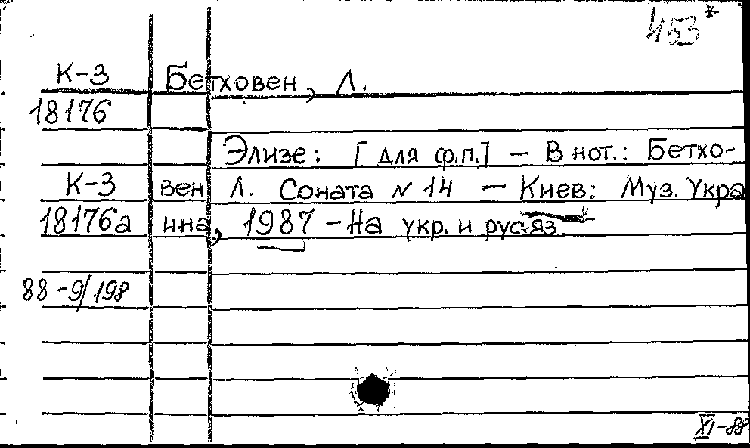 453*
К-3 Бетховен, Л.
18176
Элизе: [для ф.п.] – В нот.: Бетхо-
К-3 вен Л. Соната N 14 – Киев: Муз. Укра
18176а ина, 1987 – На укр. и рус.яз.
88-9/198
XI-88